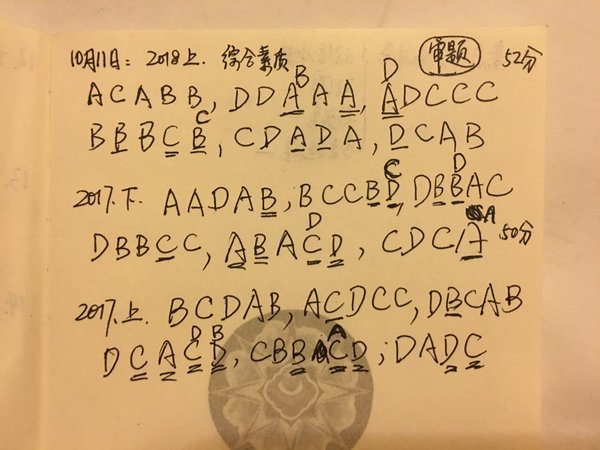 10月11日: 2018上. 综合素质 审题 52分
B D
ACABB, DDAAA, ADCCC
C
BBBCB, CDADA, DCAB
C D
2017.下. AADAB, BCCBD, DBBAC
D A
DBBCC, ABACD, CDC/A 50分
2017.上. BCDAB, ACDCC, DBCAB
D B A
DCACD, CBBACD, DADC